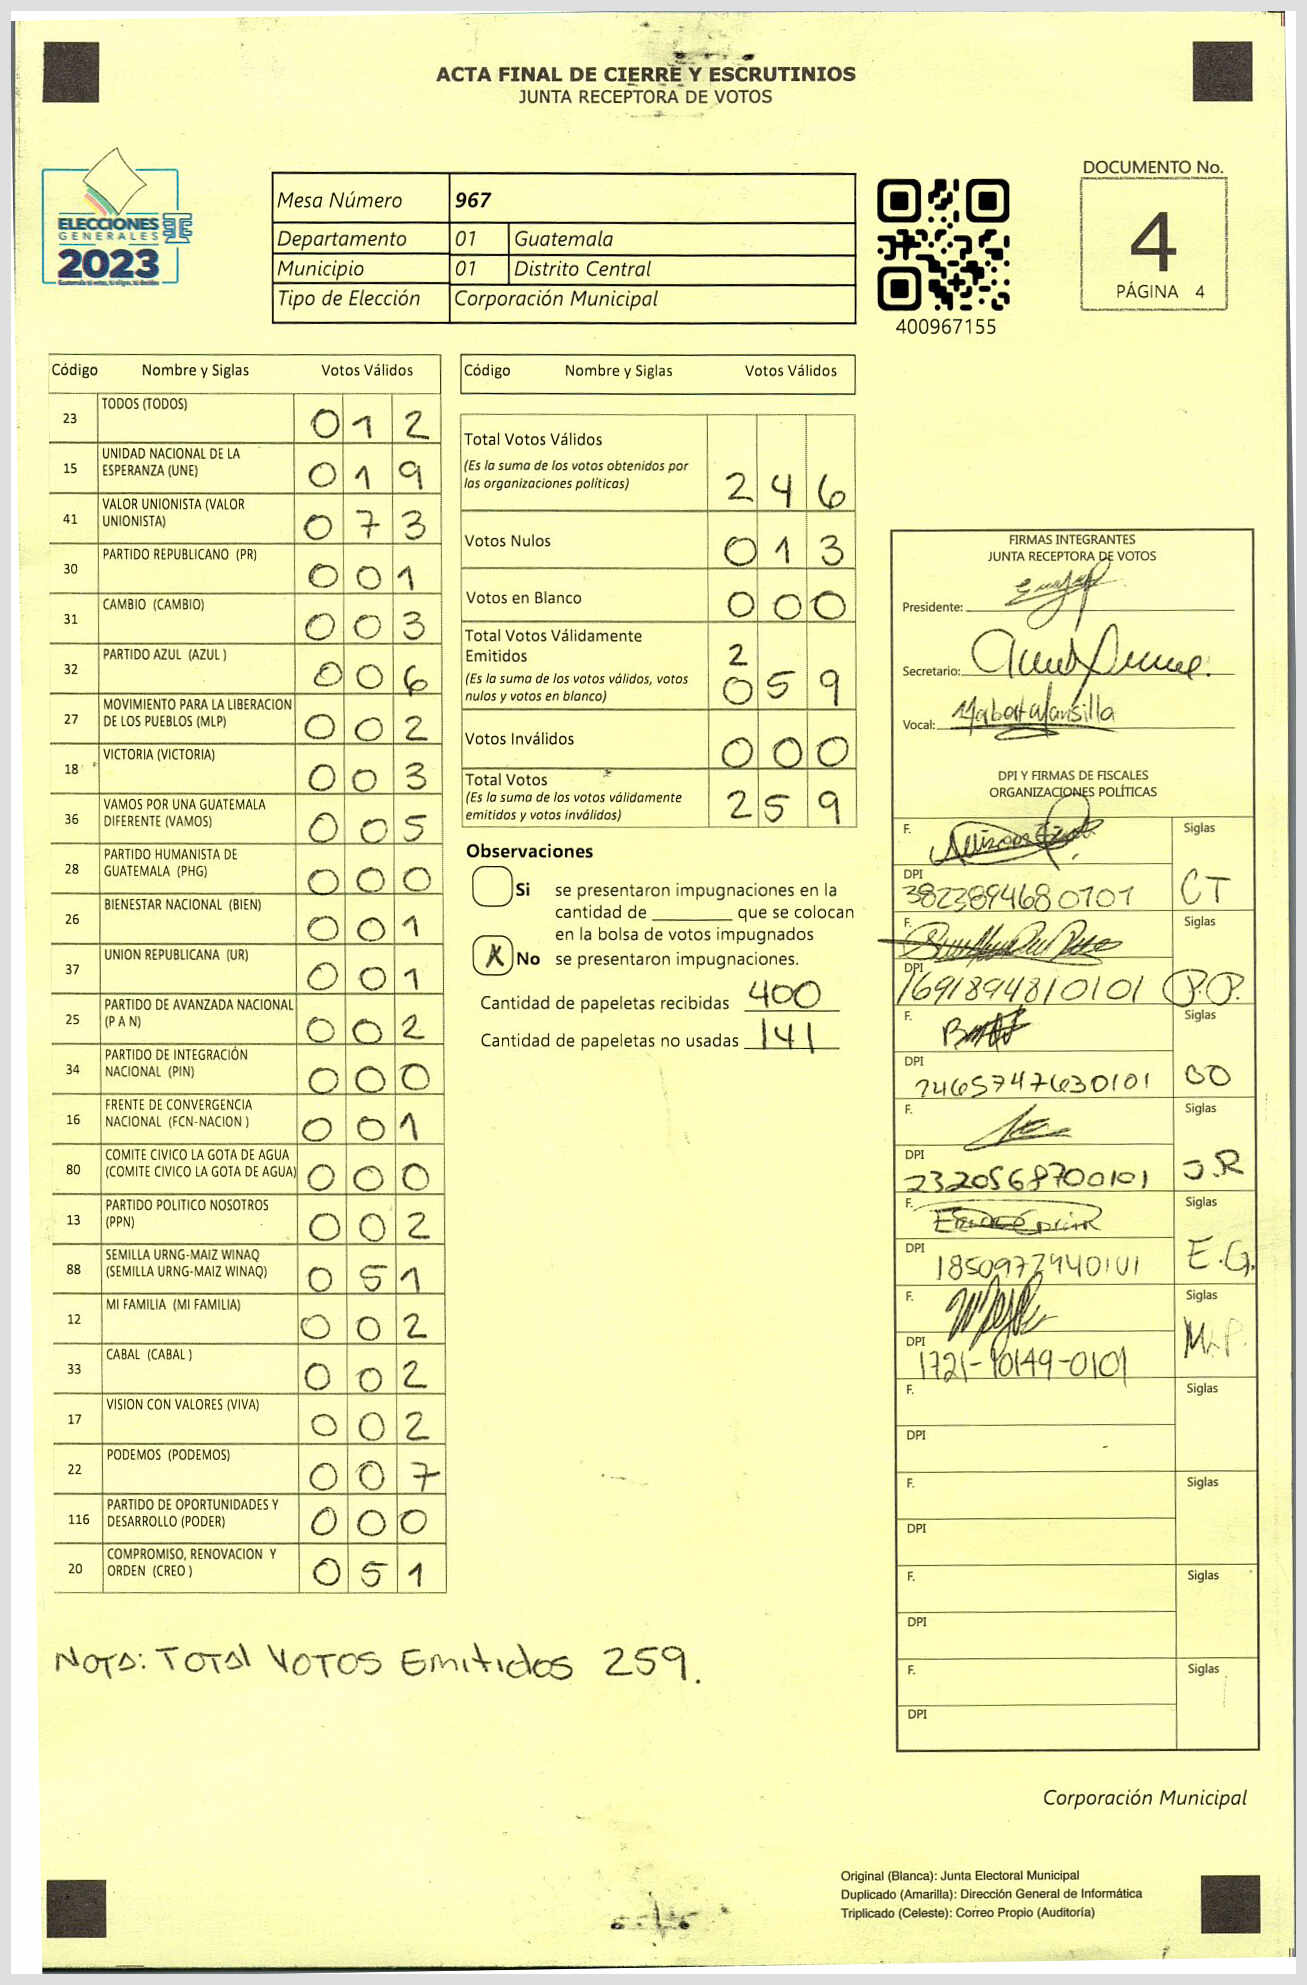 ACTA FINAL DE CIERRE Y ESCRUTINIOS
JUNTA RECEPTORA DE VOTOS
ELECCIONES
GENERALES
2023
Mesa Número 967
Departamento 01 Guatemala
Municipio 01 Distrito Central
Tipo de Elección Corporación Municipal
400967155
DOCUMENTO No.
4
PÁGINA 4
Código Nombre y Siglas Votos Válidos
23 TODOS (TODOS) 0 1 2
15 UNIDAD NACIONAL DE LA
ESPERANZA (UNE) 0 1 9
41 VALOR UNIONISTA (VALOR
UNIONISTA) 0 7 3
30 PARTIDO REPUBLICANO (PR) 0 0 1
31 CAMBIO (CAMBIO) 0 0 3
32 PARTIDO AZUL (AZUL ) 0 0 6
27 MOVIMIENTO PARA LA LIBERACION
DE LOS PUEBLOS (MLP) 0 0 2
18 VICTORIA (VICTORIA) 0 0 3
36 VAMOS POR UNA GUATEMALA
DIFERENTE (VAMOS) 0 0 5
28 PARTIDO HUMANISTA DE
GUATEMALA (PHG) 0 0 0
26 BIENESTAR NACIONAL (BIEN) 0 0 1
37 UNION REPUBLICANA (UR) 0 0 1
25 PARTIDO DE AVANZADA NACIONAL
(P A N) 0 0 2
34 PARTIDO DE INTEGRACIÓN
NACIONAL (PIN) 0 0 0
16 FRENTE DE CONVERGENCIA
NACIONAL (FCN-NACION ) 0 0 1
80 COMITE CIVICO LA GOTA DE AGUA
(COMITE CIVICO LA GOTA DE AGUA) 0 0 0
13 PARTIDO POLITICO NOSOTROS
(PPN) 0 0 2
88 SEMILLA URNG-MAIZ WINAQ
(SEMILLA URNG-MAIZ WINAQ) 0 5 1
12 MI FAMILIA (MI FAMILIA) 0 0 2
33 CABAL (CABAL ) 0 0 2
17 VISION CON VALORES (VIVA) 0 0 2
22 PODEMOS (PODEMOS) 0 0 7
116 PARTIDO DE OPORTUNIDADES Y
DESARROLLO (PODER) 0 0 0
20 COMPROMISO, RENOVACION Y
ORDEN (CREO ) 0 5 1
Nota: Total Votos Emitidos 259.
Código Nombre y Siglas Votos Válidos
Total Votos Válidos
(Es la suma de los votos obtenidos por
las organizaciones políticas) 2 4 6
Votos Nulos 0 1 3
Votos en Blanco 0 0 0
Total Votos Válidamente
Emitidos 2
(Es la suma de los votos válidos, votos
nulos y votos en blanco) 0 5 9
Votos Inválidos 0 0 0
Total Votos
(Es la suma de los votos válidamente
emitidos y votos inválidos) 2 5 9
Observaciones
Si se presentaron impugnaciones en la
cantidad de ________ que se colocan
en la bolsa de votos impugnados
X No se presentaron impugnaciones.
Cantidad de papeletas recibidas 400
Cantidad de papeletas no usadas 141
FIRMAS INTEGRANTES
JUNTA RECEPTORA DE VOTOS
Presidente:
Secretario:
Vocal:
DPI Y FIRMAS DE FISCALES
ORGANIZACIONES POLÍTICAS
F. Siglas
DPI
3823894680101 CT
F. Siglas
DPI
1691894810101 P.P.
F. Siglas
DPI
2465747630101 OO
F. Siglas
DPI
2320568700101 J.R
F. Siglas
DPI
E.G.
F. Siglas
DPI
1721-10149-0101
F. Siglas
DPI
F. Siglas
DPI
F. Siglas
DPI
F. Siglas
DPI
Corporación Municipal
Original (Blanca): Junta Electoral Municipal
Duplicado (Amarilla): Dirección General de Informática
Triplicado (Celeste): Correo Propio (Auditoría)